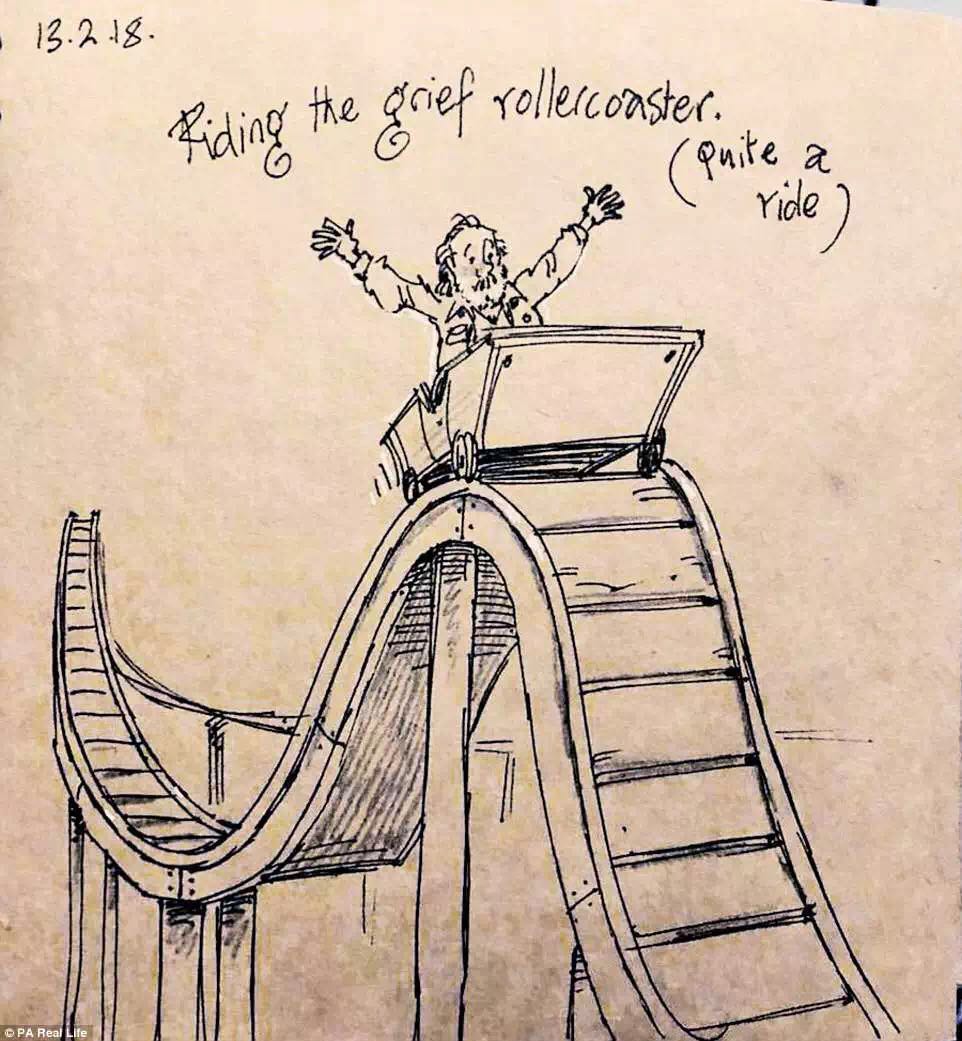 13.2.18.
Riding the grief rollercoaster.
(Quite a
ride)
© PA Real Life